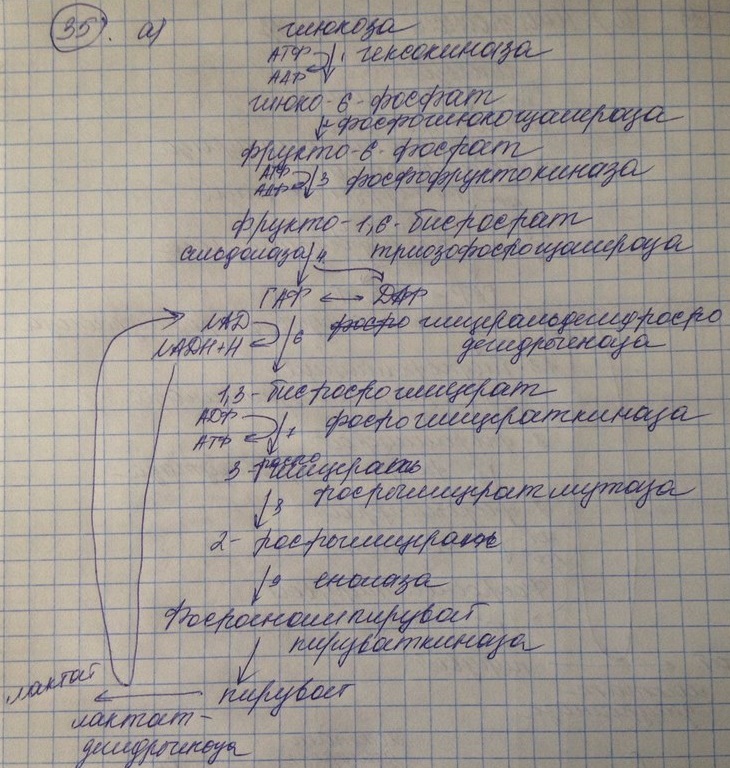 35. а) глюкоза
АТФ 1 гексокиназа
АДФ
глюко-6-фосфат
2 фосфоглюкоизомераза
фрукто-6-фосфат
АТФ
АДФ 3 фосфофруктокиназа
фрукто-1,6-бисфосфат
альдолаза 4 триозофосфоизомераза
ГАФ ДАФ
NAD фосфо глицеральдегидфосфо
NADH+H 6 дегидрогеназа
1,3-бисфосфоглицерат
АДФ фосфоглицераткиназа
АТФ 7
3-фосфоглицерат
фосфоглицератмутаза
2-фосфоглицерат
9 енолаза
Фосфоенолпируват
пируваткиназа
лактат пируват
лактат-
дегидрогеназа